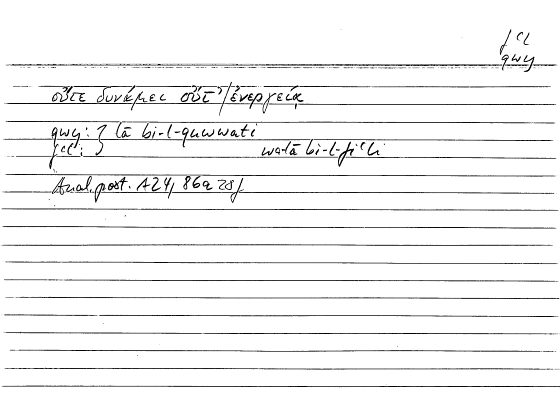 fʿl
qwy
οὔτε δυνάμει οὔτ' ἐνεργείᾳ
qwy: } lā bi-l-quwwati
fʿl: } walā bi-l-fiʿli
Anal. post. A24, 86a 28f